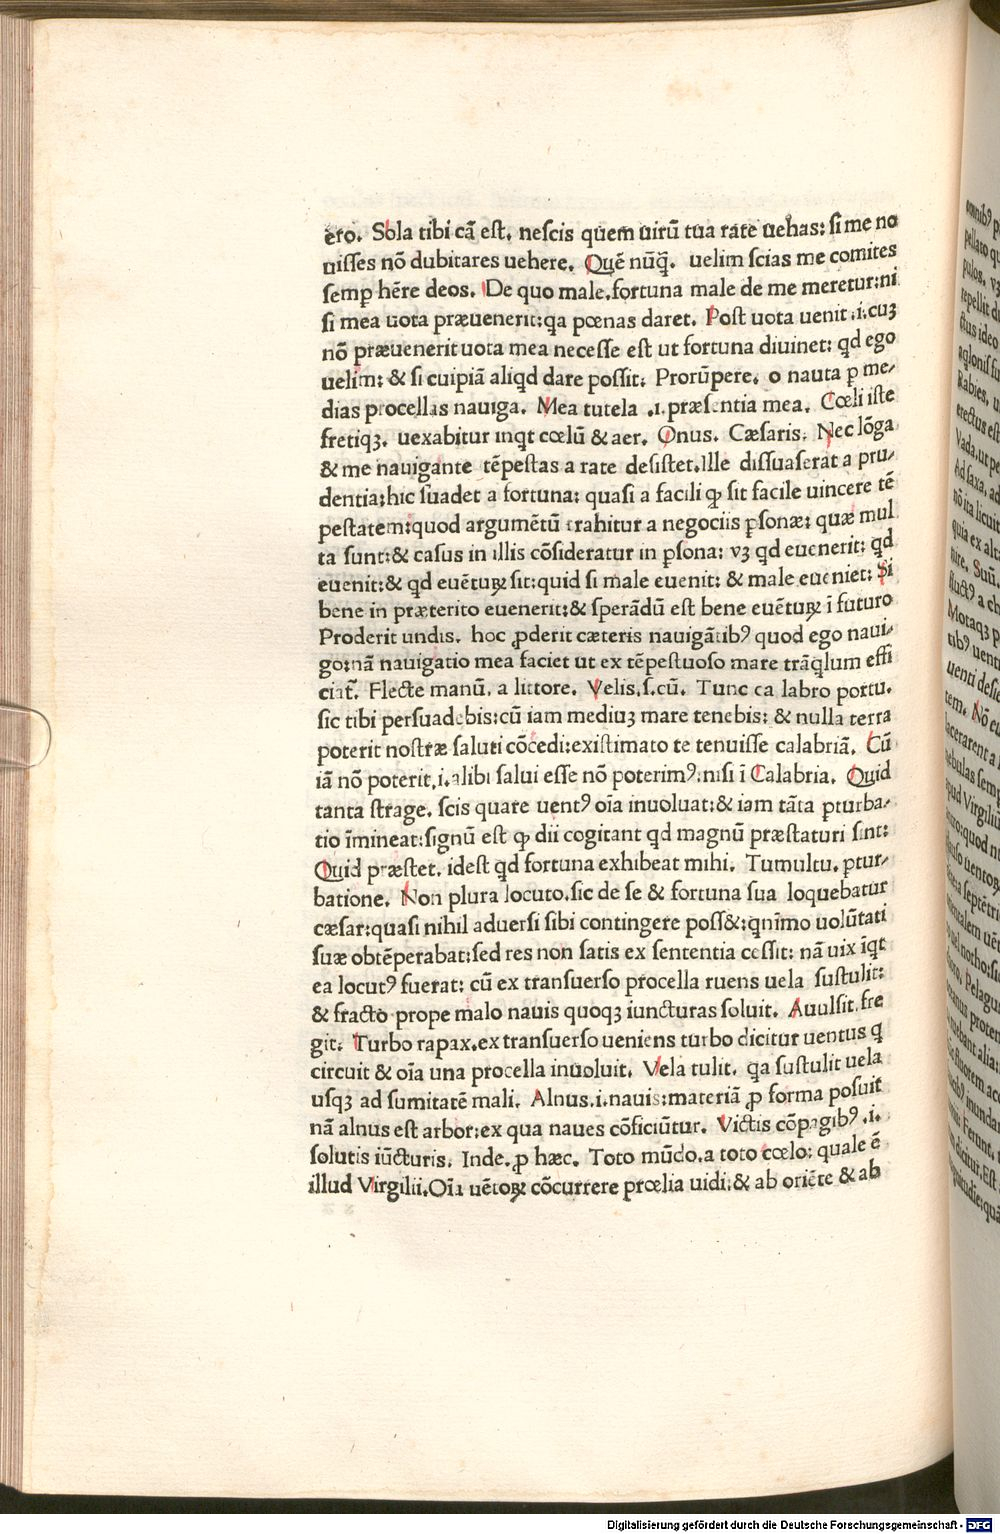 ero. Sola tibi cā est. nescis quem uirū tua rate uehas: si me no
uisses nō dubitares uehere. Quē nūq̄. uelim scias me comites
semp̱ hēre deos. De quo male.fortuna male de me meretur:ni
si mea uota præuenerit:qa pœnas daret. Post uota uenit .i.cuꝫ
nō præuenerit uota mea necesse est ut fortuna diuinet: qd ego
uelim: & si cuipiā aliqd dare possit. Prorūpere. o nauta ꝑ me-
dias procellas nauiga. Mea tutela .i. præsentia mea. Cœli iste
fretiqꝫ. uexabitur inqt cœlū & aer. Onus. Cæsaris. Nec lōga
& me nauigante tēpestas a rate desistet.Ille dissuaserat a pru-
dentia:hic suadet a fortuna: quasi a facili ꝙ sit facile uincere tē
pestatem:quod argumētū trahitur a negociis ꝑsonæ: quæ mul
ta sunt:& casus in illis cōsideratur in ꝑsona: vꝫ qd euenerit: qd
euenit:& qd euētuꝝ sit:quid si male euenit: & male eueniet: Si
bene in præterito euenerit:& sperādū est bene euētuꝝ ī futuro
Proderit undis. hoc ꝓderit cæteris nauigātibꝰ quod ego naui-
go:nā nauigatio mea faciet ut ex tēpestuoso mare trāqlum effi
ciat̄. Flecte manū. a littore. Velis.s.cū. Tunc ca labro portu.
sic tibi persuadebis:cū iam mediuꝫ mare tenebis: & nulla terra
poterit nostræ saluti cōcedi:existimato te tenuisse calabriā. Cū
iā nō poterit.i.alibi salui esse nō poterimꝰ:nisi ī Calabria. Quid
tanta strage. scis quare uentꝰ oīa inuoluat:& iam tāta ꝑturba-
tio īmineat:signū est ꝙ dii cogitant qd magnū præstaturi sint:
Quid præstet. idest qd fortuna exhibeat mihi. Tumultu. ꝑtur-
batione. Non plura locuto.sic de se & fortuna sua loquebatur
cæsar:quasi nihil aduersi sibi contingere poss&:qnīmo uolūtati
suæ obtēperabat:sed res non satis ex sententia cessit: nā uix īqt
ea locutꝰ fuerat: cū ex transuerso procella ruens uela sustulit:
& fracto prope malo nauis quoqꝫ iuncturas soluit. Auulsit.fre
git. Turbo rapax.ex transuerso ueniens turbo dicitur uentus q
circuit & oīa una procella inuoluit. Vela tulit. qa sustulit uela
usqꝫ ad sumitatē mali. Alnus.i.nauis:materiā ꝓ forma posuit
nā alnus est arbor:ex qua naues cōficiūtur. Victis cōpagibꝰ .i.
solutis iūcturis. Inde.ꝑ hæc. Toto mūdo.a toto cœlo: quale ē
illud Virgilii.Oīa uētoꝝ cōcurrere prœlia uidi:& ab oriēte & ab
Digitalisierung gefördert durch die Deutsche Forschungsgemeinschaft - DFG